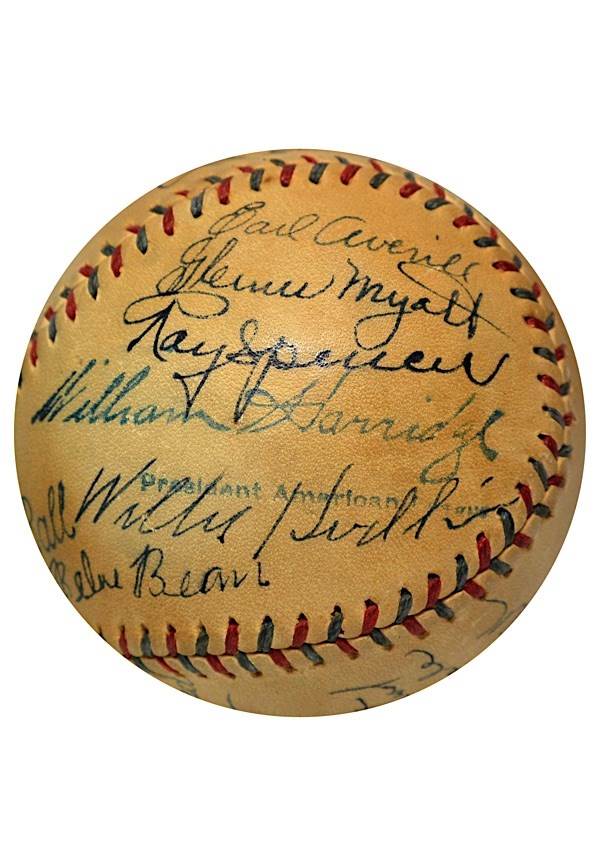 Earl Averill
Glenn Myatt
Roy Spencer
William Harridge
President American League
Ball
Willis Hudlin
Belve Bean